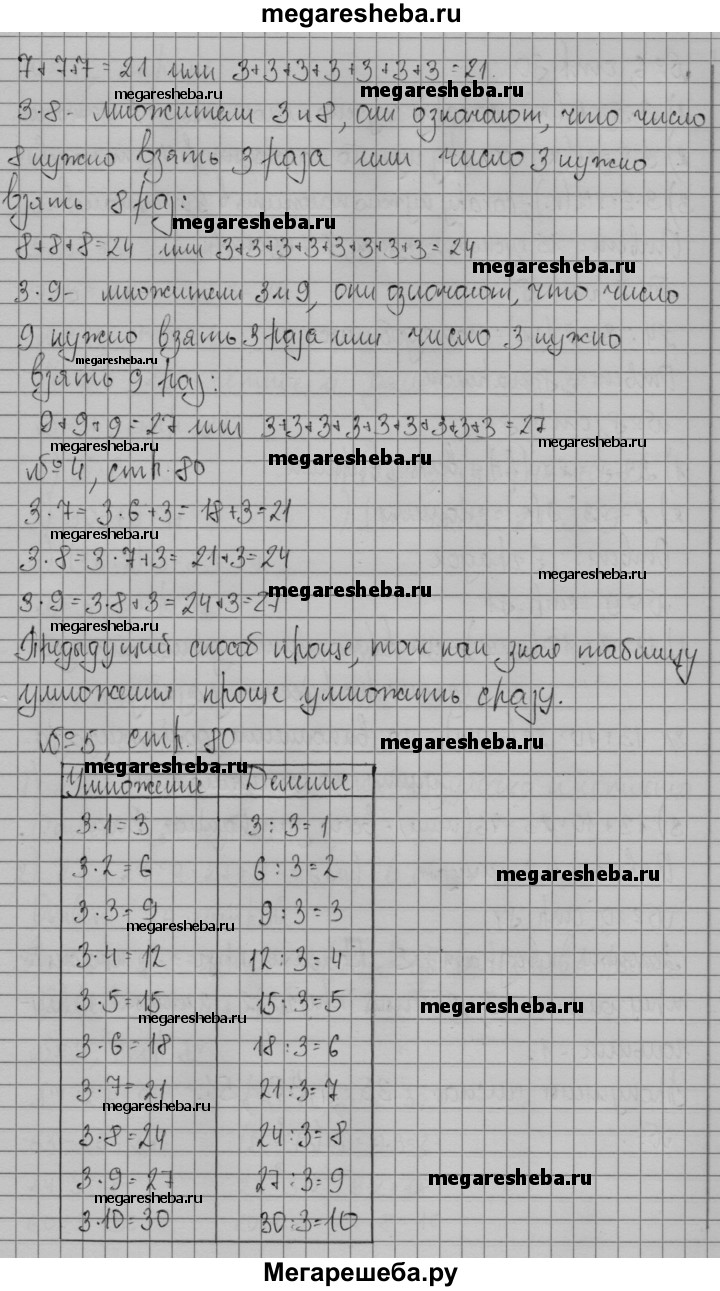 megaresheba.ru
7+7+7=21 или 3+3+3+3+3+3+3=21.
megaresheba.ru megaresheba.ru
3·8 - множители 3 и 8, они означают, что число
8 нужно взять 3 раза или число 3 нужно
взять 8 раз:
megaresheba.ru
8+8+8=24 или 3+3+3+3+3+3+3+3=24
megaresheba.ru
3·9 - множители 3 и 9, они означают, что число
9 нужно взять 3 раза или число 3 нужно
megaresheba.ru
взять 9 раз:
9+9+9=27 или 3+3+3+3+3+3+3+3+3=27
megaresheba.ru megaresheba.ru megaresheba.ru
№4, стр. 80
3·7=3·6+3=18+3=21
megaresheba.ru
3·8=3·7+3=21+3=24
megaresheba.ru megaresheba.ru
3·9=3·8+3=24+3=27
megaresheba.ru
Предыдущий способ проще, так как зная таблицу
умножения проще умножить сразу.
№5, стр. 80
megaresheba.ru
megaresheba.ru
Умножение Деление
3·1=3 3:3=1
3·2=6 6:3=2
megaresheba.ru
3·3=9 9:3=3
megaresheba.ru
3·4=12 12:3=4
3·5=15 15:3=5
megaresheba.ru
megaresheba.ru
3·6=18 18:3=6
3·7=21 21:3=7
megaresheba.ru
3·8=24 24:3=8
3·9=27 27:3=9
megaresheba.ru
megaresheba.ru
3·10=30 30:3=10
Мегарешеба.ру